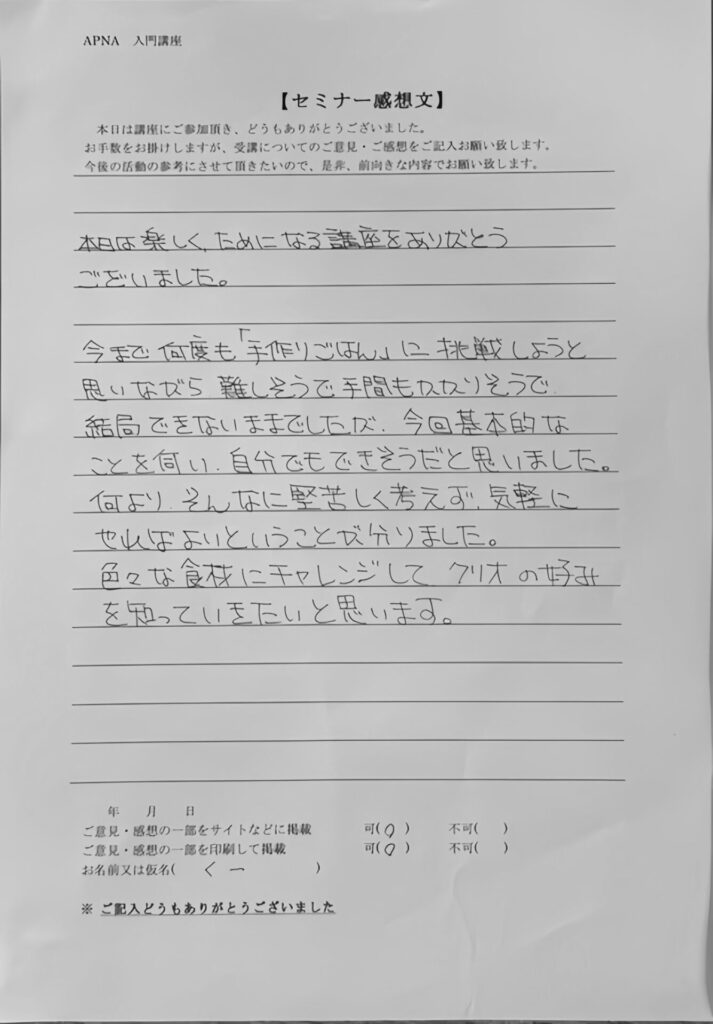 APNA 入門講座
【セミナー感想文】
本日は講座にご参加頂き、どうもありがとうございました。
お手数をお掛けしますが、受講についてのご意見・ご感想をご記入お願い致します。
今後の活動の参考にさせて頂きたいので、是非、前向きな内容でお願い致します。
本日は楽しく、ためになる講座をありがとう
ございました。
今まで何度も「手作りごはん」に挑戦しようと
思いながら 難しそうで手間もかかりそうで
結局できないままでしたが、今回基本的な
ことを伺い、自分でもできそうだと思いました。
何より、そんなに堅苦しく考えず、気軽に
やればよいということが分りました。
色々な食材にチャレンジして クリオの好み
を知っていきたいと思います。
年 月 日
ご意見・感想の一部をサイトなどに掲載 可(○) 不可( )
ご意見・感想の一部を印刷して掲載 可(○) 不可( )
お名前又は仮名( くー )
※ ご記入どうもありがとうございました